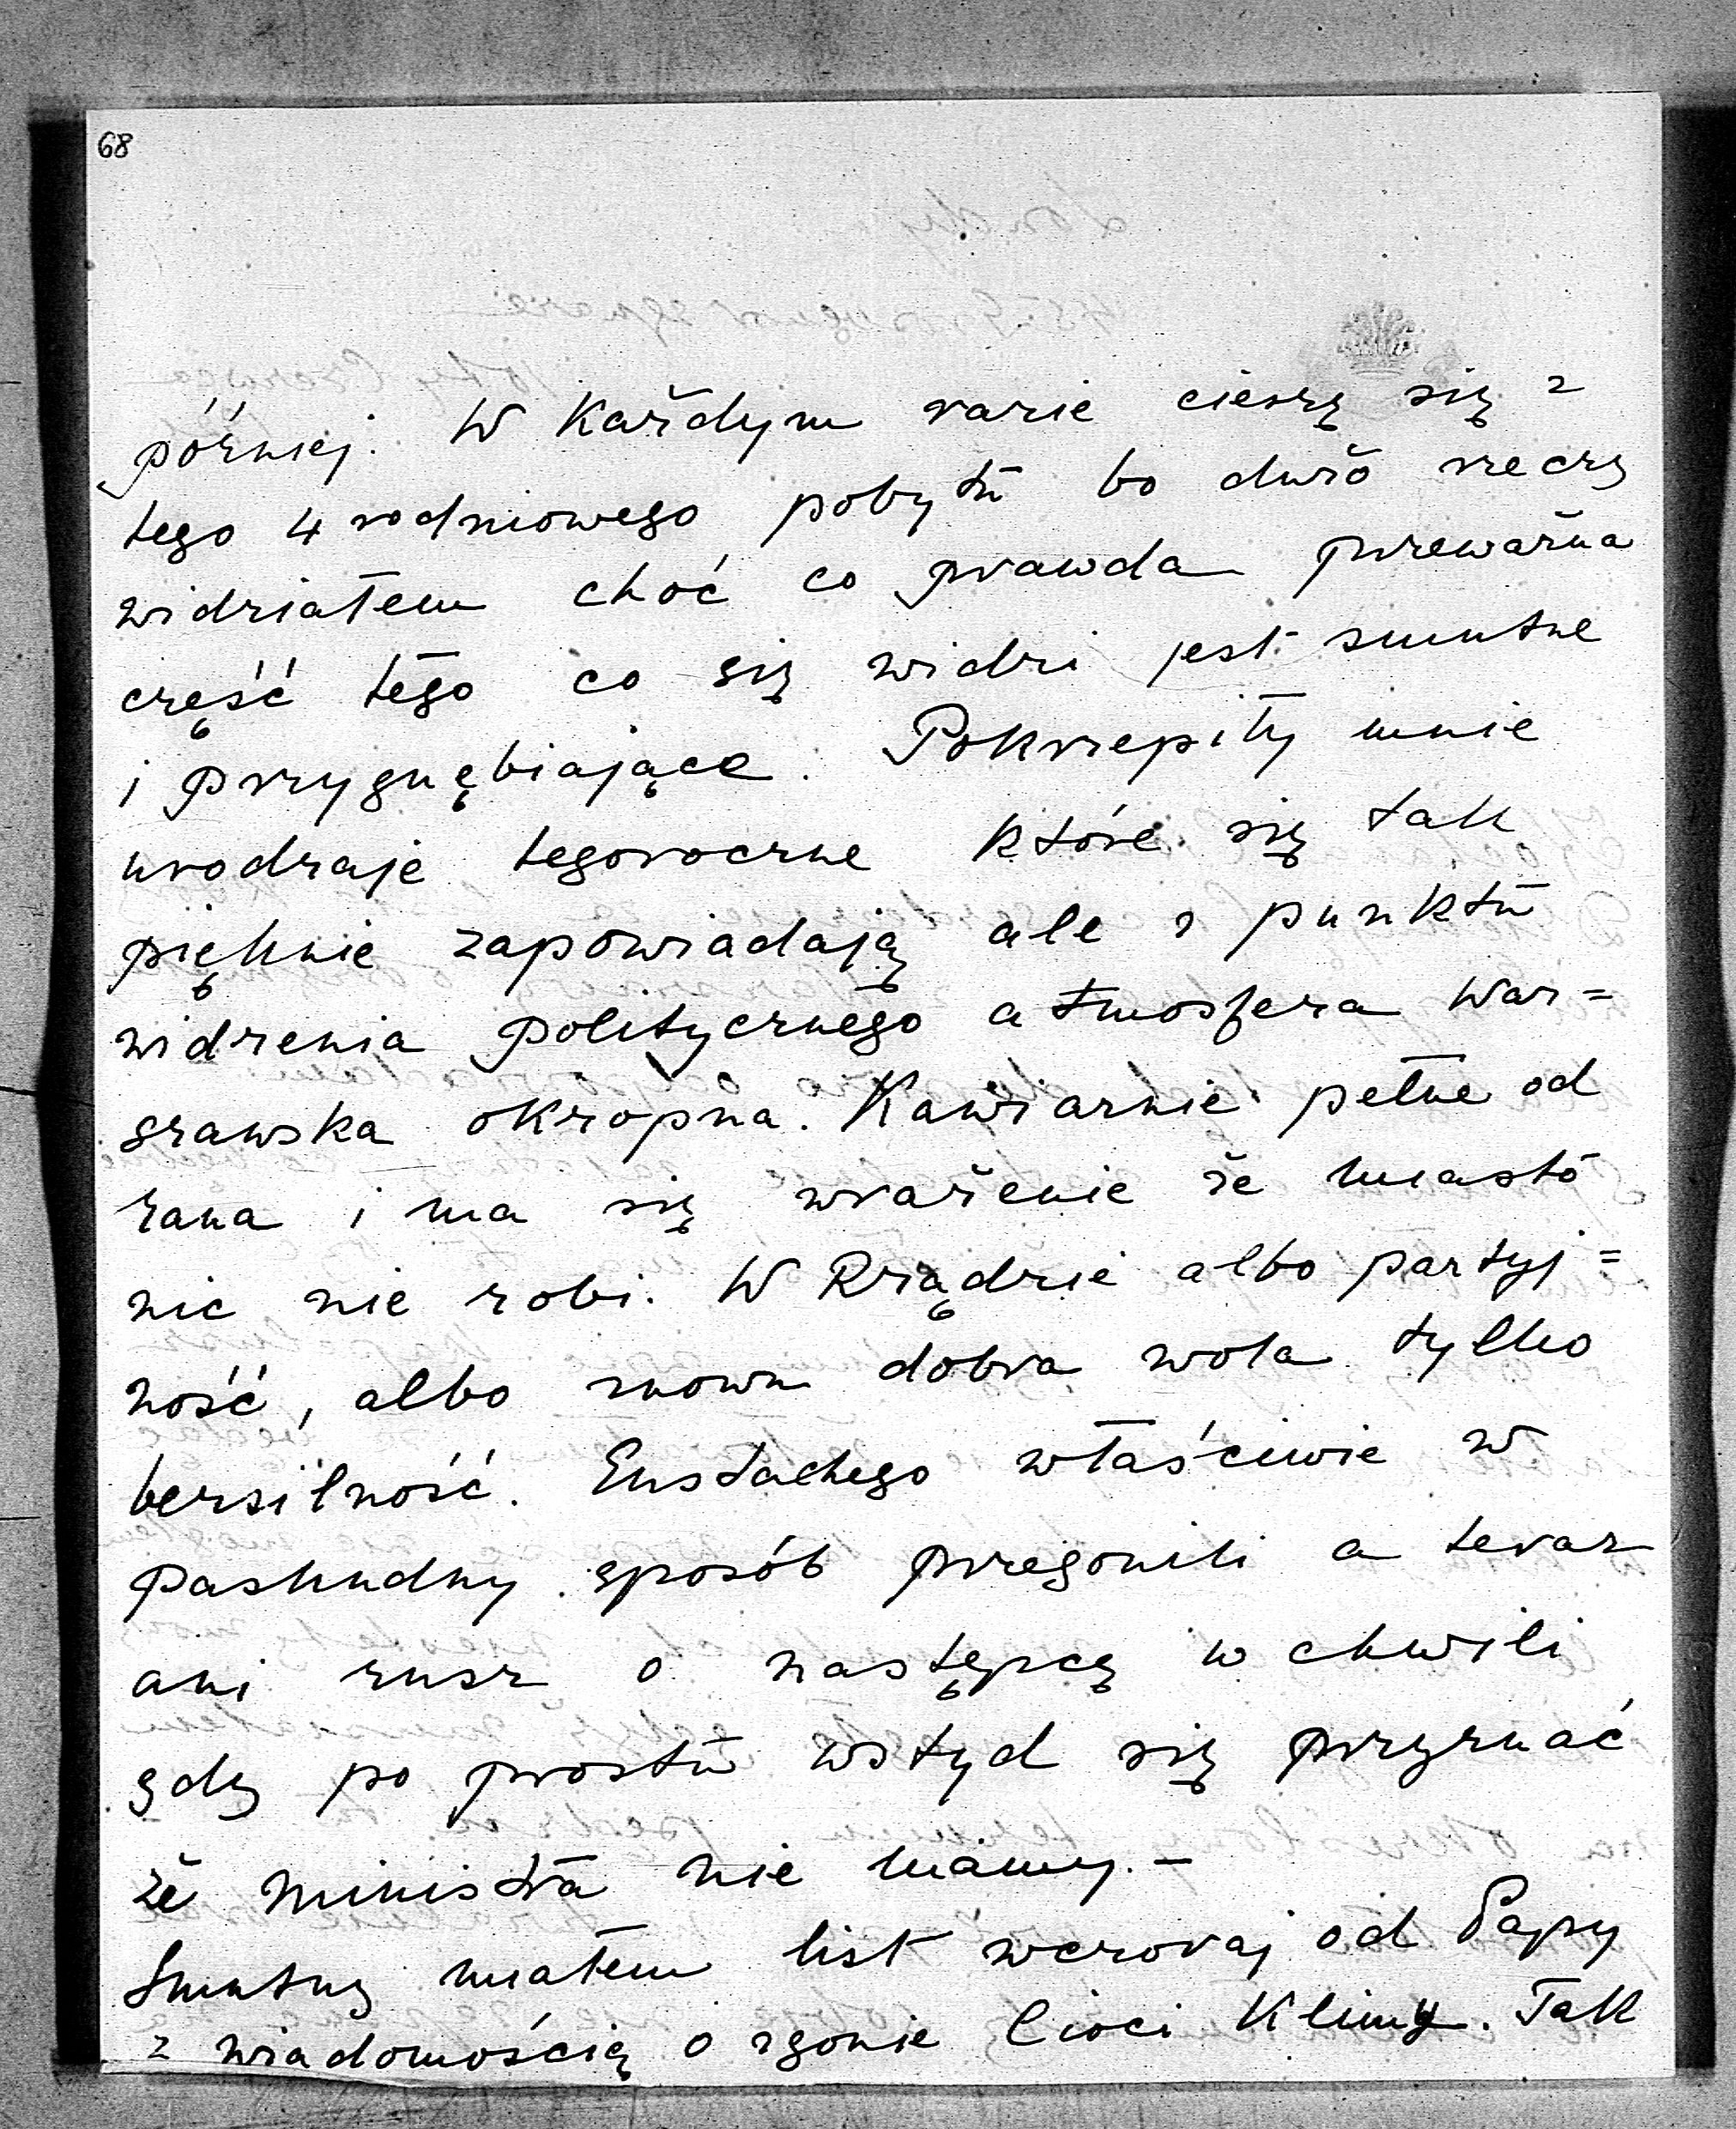 68
później. W każdym razie cieszę się z
tego 4 rodniowego pobytu bo dużo rzeczy
widziałem choć co prawda przeważna
część tego co się widzi jest smutne
i przygnębiające. Pokrzepiły mnie
urodzaje tegoroczne które się tak
pięknie zapowiadają ale z punktu
widzenia politycznego atmosfera War=
szawska okropna. Kawiarnie pełne od
rana i ma się wrażenie że miasto
nic nie robi. W Rządzie albo partyj=
ność, albo znowu dobra wola tylko
bezsilność. Eustachego właściwie w
paskudny sposób przegonili a teraz
ani rusz o następcę w chwili
gdy po prostu wstyd się przyznać
że ministra nie mamy.-
Smutny miałem list wczoraj od Papy
z wiadomością o zgonie Cioci Klimy. Tak